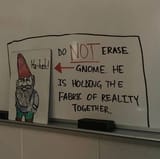 Ha-hah!
DO NOT ERASE
GNOME. HE
IS HOLDING THE
FABRIC OF REALITY
TOGETHER.